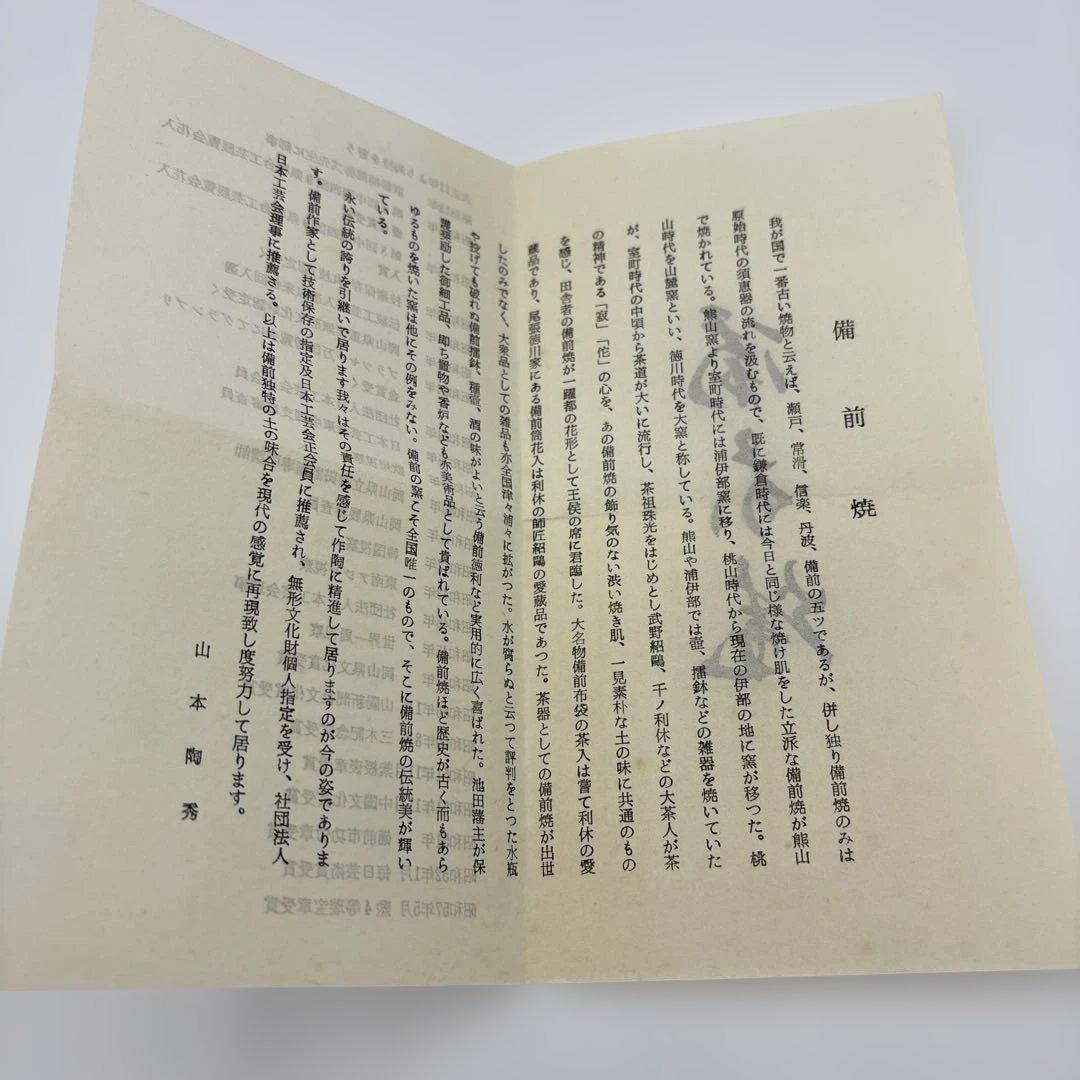 備前焼
我が国で一番古い焼物と云えば、瀬戸、常滑、信楽、丹波、備前の五ツであるが、併し独り備前焼のみは
原始時代の須恵器の流れを汲むもので、既に鎌倉時代には今日と同じ様な焼け肌をした立派な備前焼が熊山
で焼かれている。熊山窯より室町時代には浦伊部窯に移り、桃山時代から現在の伊部の地に窯が移つた。桃
山時代を山麓窯といい、徳川時代を大窯と称している。熊山や浦伊部では壺、擂鉢などの雑器を焼いていた
が、室町時代の中頃から茶道が大いに流行し、茶祖珠光をはじめとし武野紹鷗、千ノ利休などの大茶人が茶
の精神である「寂」「佗」の心を、あの備前焼の飾り気のない渋い焼き肌、一見素朴な土の味に共通のもの
を感じ、田舎者の備前焼が一躍都の花形として王侯の席に君臨した。大名物備前布袋の茶入は嘗て利休の愛
蔵品であり、尾張徳川家にある備前筒花入は利休の師匠紹鷗の愛蔵品であつた。茶器としての備前焼が出世
したのみでなく、大衆品としての雑品も亦全国津々浦々に拡がつた。水が腐らぬと云つて評判をとつた水瓶
や投げても破れぬ備前擂鉢、種壺、酒の味がよいと云う備前徳利など実用的に広く喜ばれた。池田藩主が保
護奨励した御細工品、即ち置物や香炉なども亦美術品として貴ばれている。備前焼ほど歴史が古く而もあら
ゆるものを焼いた窯は他にその例をみない。備前の窯こそ全国唯一のもので、そこに備前焼の伝統美が輝い
ている。
永い伝統の誇りを引継いで居ります我々はその責任を感じて作陶に精進して居りますのが今の姿でありま
す。備前作家として技術保存の指定及日本工芸会正会員に推薦され、無形文化財個人指定を受け、社団法人
日本工芸会理事に推薦さる。以上は備前独特の土の味合を現代の感覚に再現致し度努力して居ります。
山本陶秀